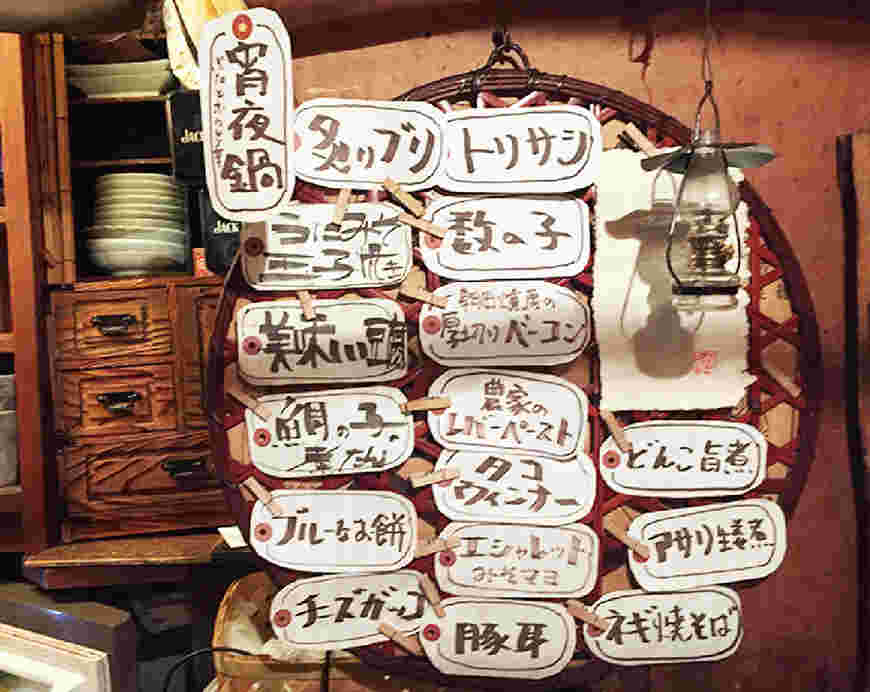 宵夜鍋
炙りブリ
トリサシ
数の子
美味い豆腐
厚切りベーコン
農家の
レバーペースト
鯛の子の
タコ
ウィンナー
どんこ旨煮
ブルーなお餅
エシャレット
みそマヨ
アサリ生姜煮
チーズガッコ
豚耳
ネギ焼そば
JACK
JACK